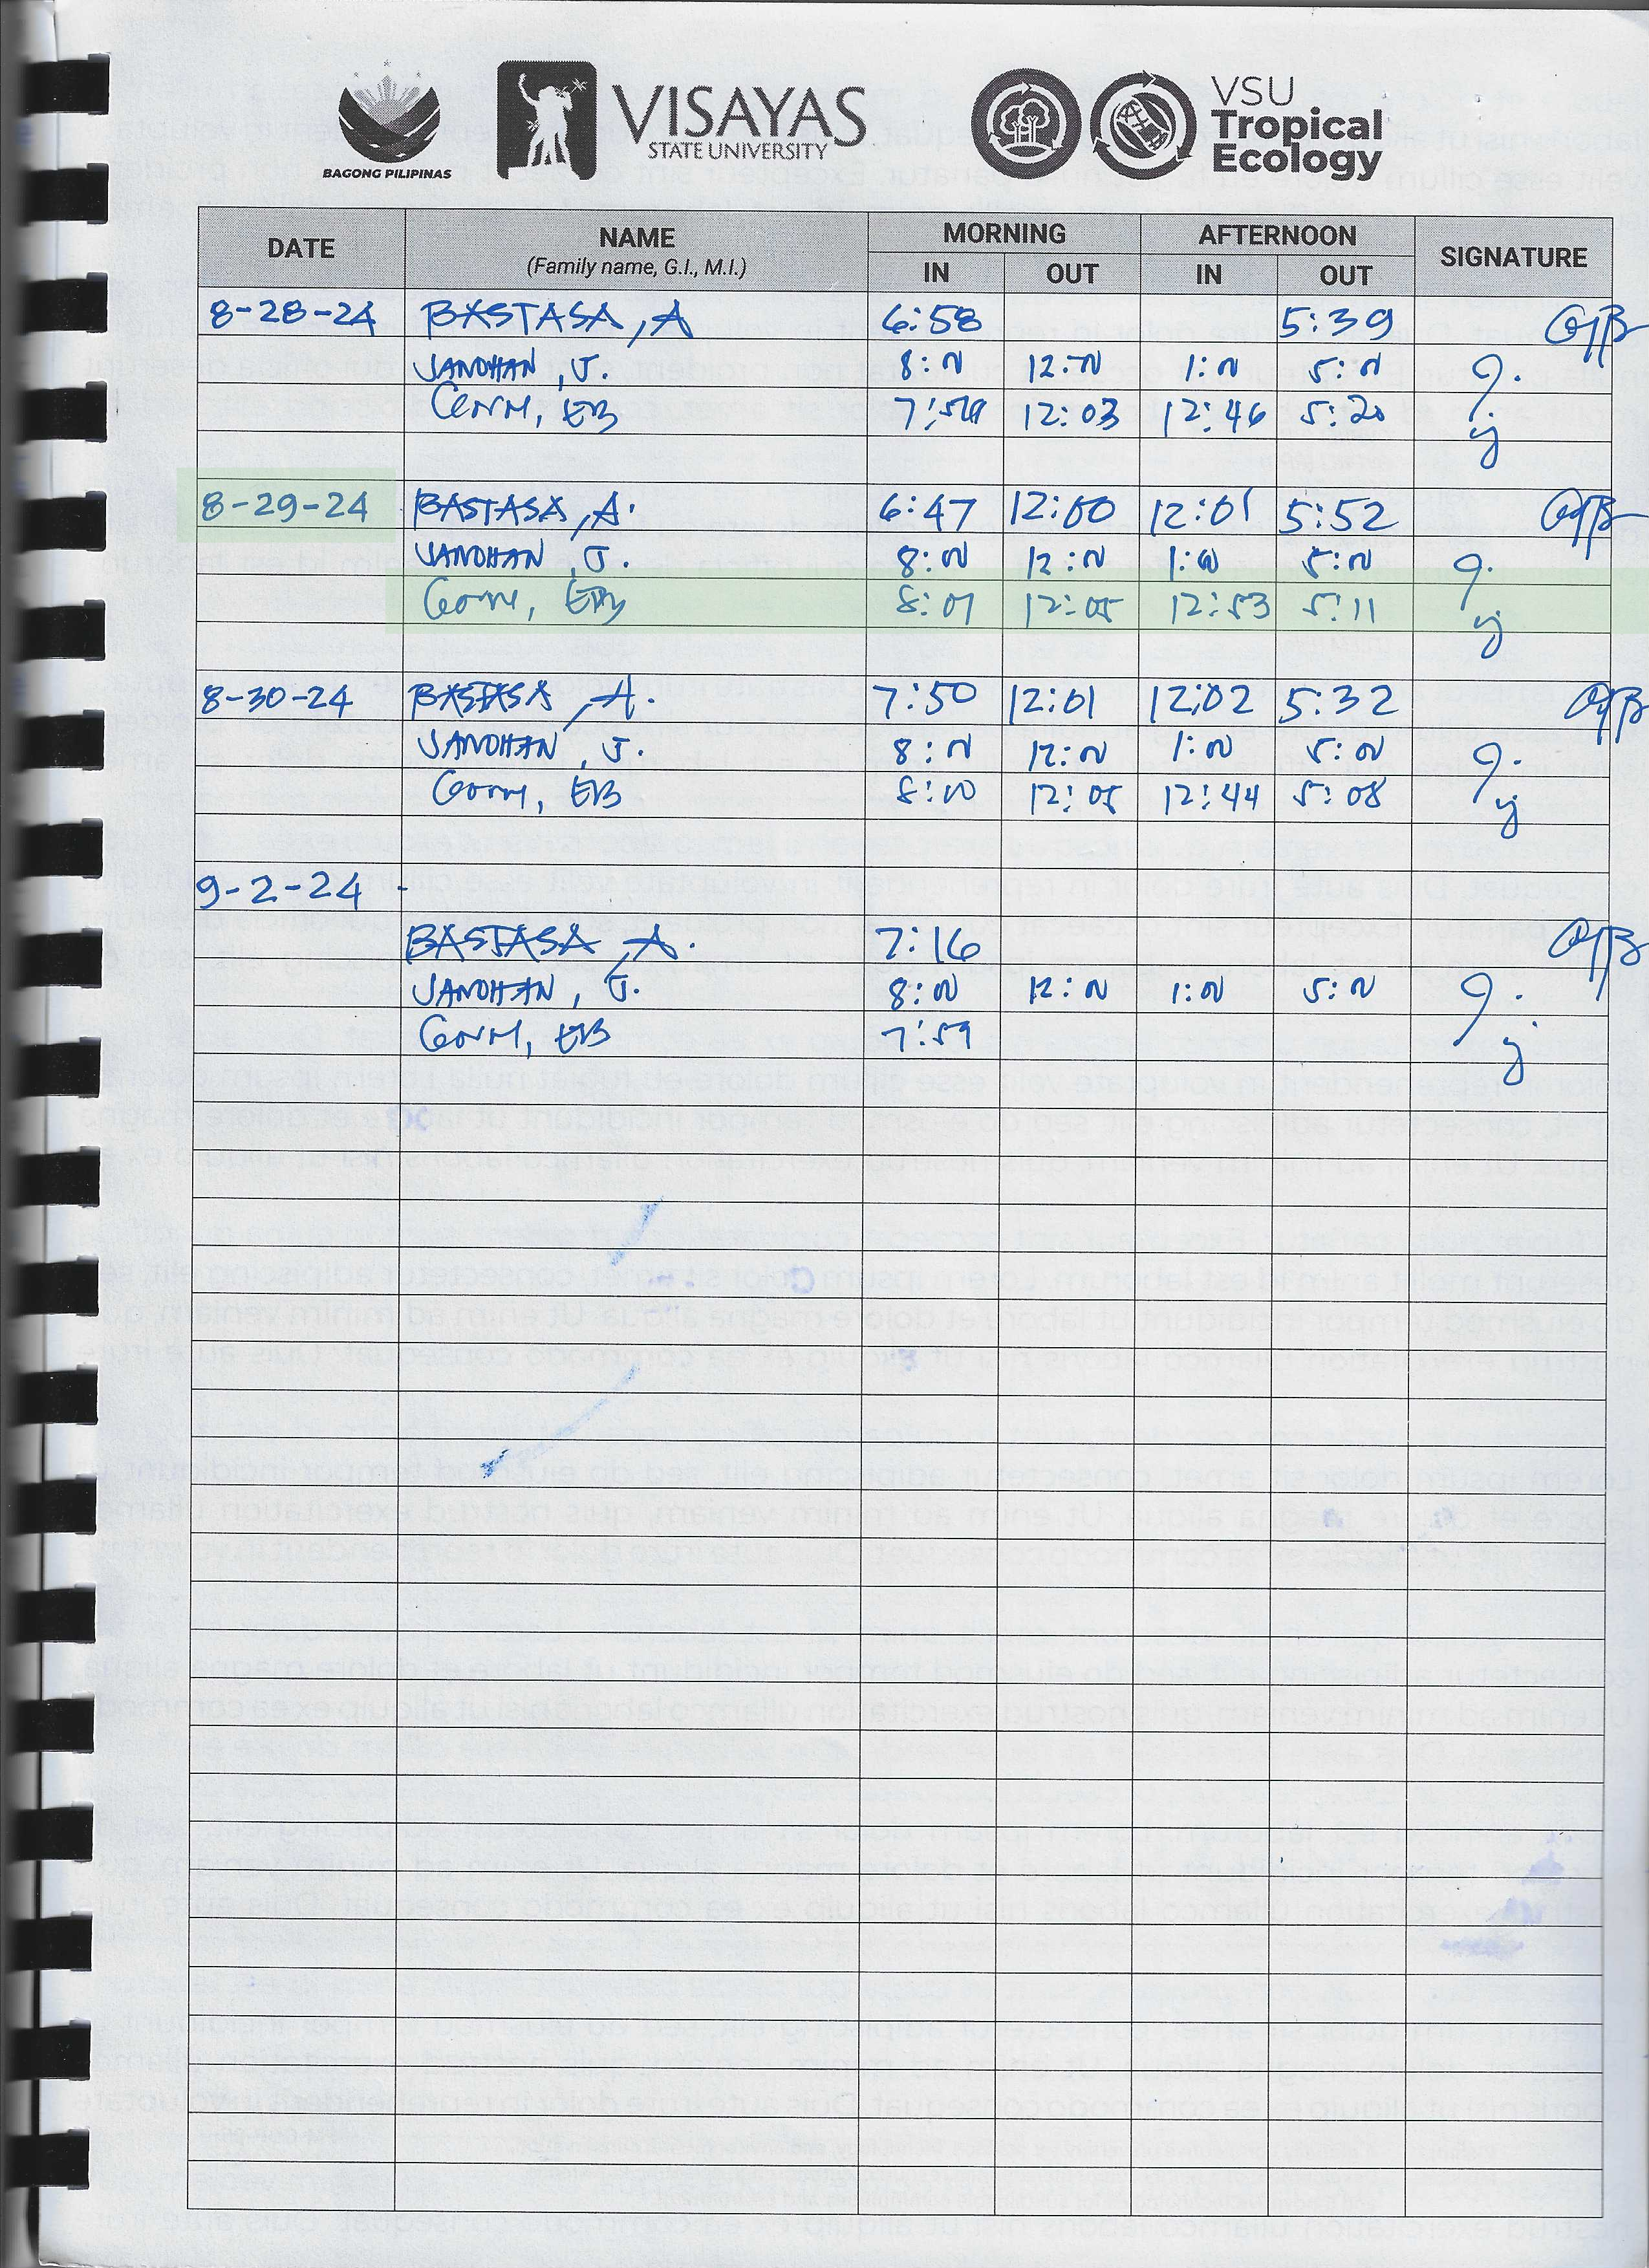 BAGONG PILIPINAS
VISAYAS
STATE UNIVERSITY
VSU
Tropical
Ecology
DATE NAME (Family name, G.I., M.I.) MORNING IN OUT AFTERNOON IN OUT SIGNATURE
8-28-24 BASTASA, A 6:58 5:39
JANOHAN, J. 8:00 12:00 1:00 5:00
EB 7:59 12:03 12:46 5:20
8-29-24 BASTASA, A. 6:47 12:00 12:01 5:52
JANOHAN, J. 8:00 12:00 1:00 5:00
EB 8:01 12:05 12:53 5:11
8-30-24 BASTASA, A. 7:50 12:01 12:02 5:32
JANOHAN, J. 8:00 12:00 1:00 5:00
EB 8:00 12:05 12:44 5:08
9-2-24 -
BASTASA, A. 7:16
JANOHAN, J. 8:00 12:00 1:00 5:00
EB 7:59